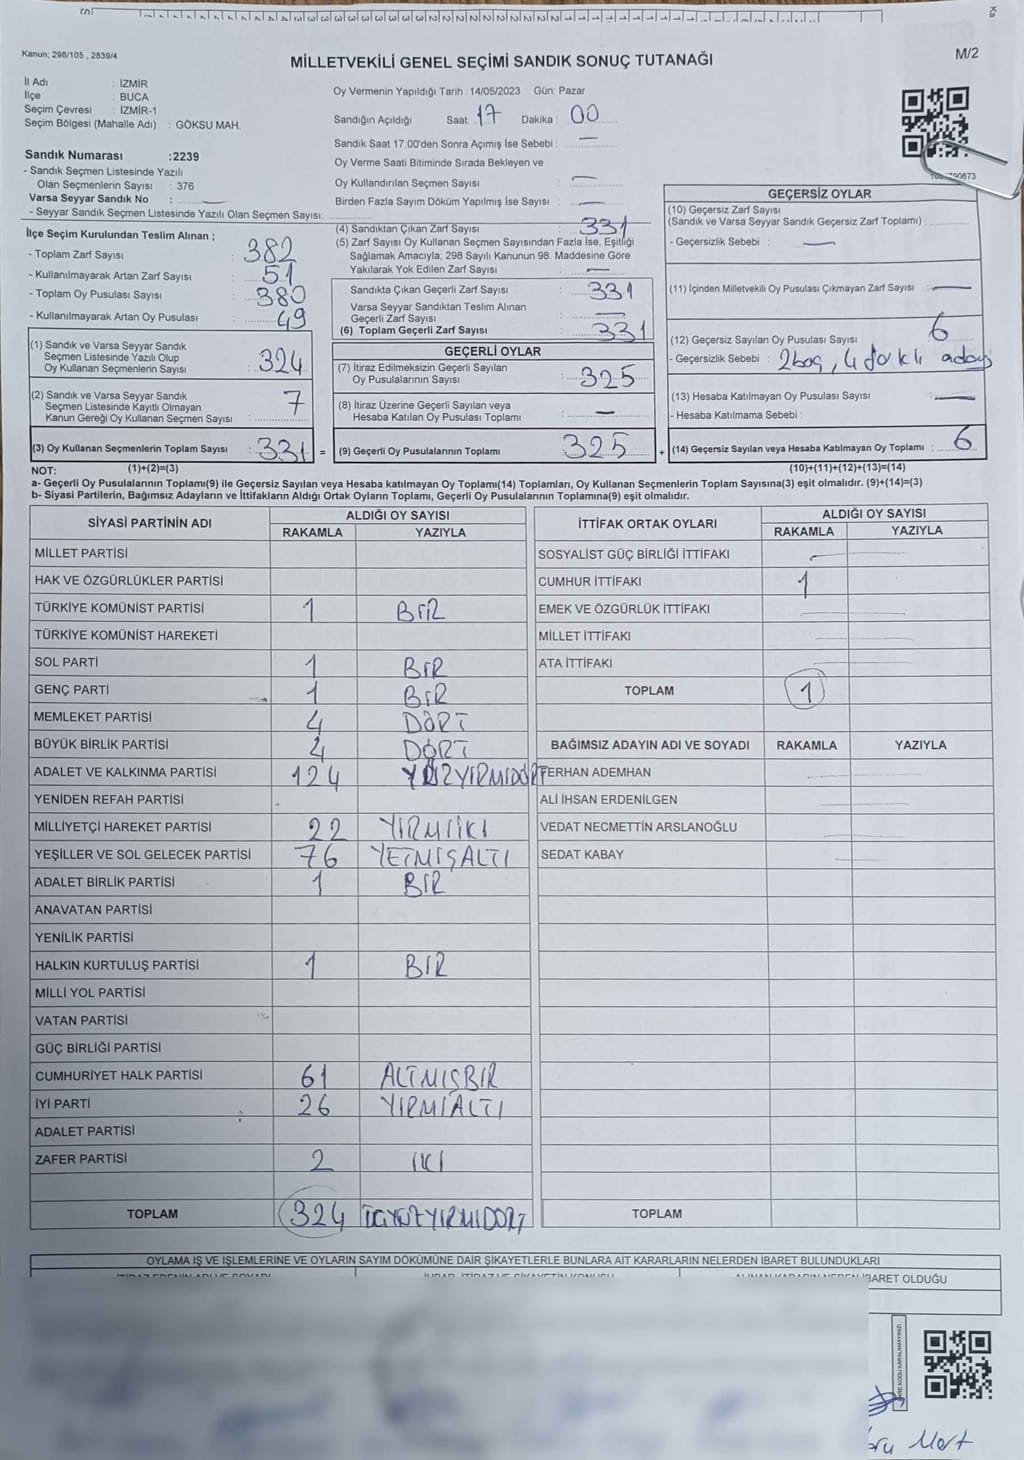 Kanun: 298/105 , 2839/4
MİLLETVEKİLİ GENEL SEÇİMİ SANDIK SONUÇ TUTANAĞI
M/2
İl Adı : İZMİR
İlçe : BUCA
Seçim Çevresi : İZMİR-1
Seçim Bölgesi (Mahalle Adı) : GÖKSU MAH.
Oy Vermenin Yapıldığı Tarih : 14/05/2023 Gün: Pazar
Sandığın Açıldığı Saat: 17 Dakika : 00
Sandık Saat 17:00'den Sonra Açımış İse Sebebi : —
Oy Verme Saati Bitiminde Sırada Bekleyen ve
Oy Kullandırılan Seçmen Sayısı : —
Birden Fazla Sayım Döküm Yapılmış İse Sayısı : —
Sandık Numarası :2239
- Sandık Seçmen Listesinde Yazılı
Olan Seçmenlerin Sayısı : 376
Varsa Seyyar Sandık No : —
- Seyyar Sandık Seçmen Listesinde Yazılı Olan Seçmen Sayısı:
İlçe Seçim Kurulundan Teslim Alınan ;
- Toplam Zarf Sayısı : 382
- Kullanılmayarak Artan Zarf Sayısı : 51
- Toplam Oy Pusulası Sayısı : 380
- Kullanılmayarak Artan Oy Pusulası : 49
(1) Sandık ve Varsa Seyyar Sandık
Seçmen Listesinde Yazılı Olup
Oy Kullanan Seçmenlerin Sayısı : 324
(2) Sandık ve Varsa Seyyar Sandık
Seçmen Listesinde Kayıtlı Olmayan
Kanun Gereği Oy Kullanan Seçmen Sayısı : 7
(3) Oy Kullanan Seçmenlerin Toplam Sayısı : 331 =
(4) Sandıktan Çıkan Zarf Sayısı : 331
(5) Zarf Sayısı Oy Kullanan Seçmen Sayısından Fazla İse, Eşitliği
Sağlamak Amacıyla; 298 Sayılı Kanunun 98. Maddesine Göre
Yakılarak Yok Edilen Zarf Sayısı : —
Sandıkta Çıkan Geçerli Zarf Sayısı : 331
Varsa Seyyar Sandıktan Teslim Alınan
Geçerli Zarf Sayısı : —
(6) Toplam Geçerli Zarf Sayısı : 331
GEÇERLİ OYLAR
(7) İtiraz Edilmeksizin Geçerli Sayılan
Oy Pusulalarının Sayısı : 325
(8) İtiraz Üzerine Geçerli Sayılan veya
Hesaba Katılan Oy Pusulası Toplamı : —
(9) Geçerli Oy Pusulalarının Toplamı : 325 +
GEÇERSİZ OYLAR
(10) Geçersiz Zarf Sayısı
(Sandık ve Varsa Seyyar Sandık Geçersiz Zarf Toplamı) :
- Geçersizlik Sebebi : —
(11) İçinden Milletvekili Oy Pusulası Çıkmayan Zarf Sayısı : —
(12) Geçersiz Sayılan Oy Pusulası Sayısı : 6
- Geçersizlik Sebebi : 2 boş, 4 farklı aday
(13) Hesaba Katılmayan Oy Pusulası Sayısı : —
- Hesaba Katılmama Sebebi :
(14) Geçersiz Sayılan veya Hesaba Katılmayan Oy Toplamı : 6
NOT: (1)+(2)=(3) (10)+(11)+(12)+(13)=(14)
a- Geçerli Oy Pusulalarının Toplamı(9) ile Geçersiz Sayılan veya Hesaba katılmayan Oy Toplamı(14) Toplamları, Oy Kullanan Seçmenlerin Toplam Sayısına(3) eşit olmalıdır. (9)+(14)=(3)
b- Siyasi Partilerin, Bağımsız Adayların ve İttifakların Aldığı Ortak Oyların Toplamı, Geçerli Oy Pusulalarının Toplamına(9) eşit olmalıdır.
SİYASİ PARTİNİN ADI ALDIĞI OY SAYISI
RAKAMLA YAZIYLA
MİLLET PARTİSİ
HAK VE ÖZGÜRLÜKLER PARTİSİ
TÜRKİYE KOMÜNİST PARTİSİ 1 BİR
TÜRKİYE KOMÜNİST HAREKETİ
SOL PARTİ 1 BİR
GENÇ PARTİ 1 BİR
MEMLEKET PARTİSİ 4 DÖRT
BÜYÜK BİRLİK PARTİSİ 4 DÖRT
ADALET VE KALKINMA PARTİSİ 124 YÜZYIRMIDÖRT
YENİDEN REFAH PARTİSİ
MİLLİYETÇİ HAREKET PARTİSİ 22 YIRMIIKI
YEŞİLLER VE SOL GELECEK PARTİSİ 76 YETMIŞALTI
ADALET BİRLİK PARTİSİ 1 BİR
ANAVATAN PARTİSİ
YENİLİK PARTİSİ
HALKIN KURTULUŞ PARTİSİ 1 BIR
MİLLİ YOL PARTİSİ
VATAN PARTİSİ
GÜÇ BİRLİĞİ PARTİSİ
CUMHURİYET HALK PARTİSİ 61 ALTMIŞBIR
İYİ PARTİ 26 YIRMIALTI
ADALET PARTİSİ
ZAFER PARTİSİ 2 IKI
TOPLAM 324 ÜÇYÜZYIRMIDÖRT
İTTİFAK ORTAK OYLARI ALDIĞI OY SAYISI
RAKAMLA YAZIYLA
SOSYALİST GÜÇ BİRLİĞİ İTTİFAKI —
CUMHUR İTTİFAKI 1
EMEK VE ÖZGÜRLÜK İTTİFAKI —
MİLLET İTTİFAKI —
ATA İTTİFAKI —
TOPLAM 1
BAĞIMSIZ ADAYIN ADI VE SOYADI RAKAMLA YAZIYLA
FERHAN ADEMHAN —
ALİ İHSAN ERDENİLGEN —
VEDAT NECMETTİN ARSLANOĞLU —
SEDAT KABAY —
TOPLAM
OYLAMA İŞ VE İŞLEMLERİNE VE OYLARIN SAYIM DÖKÜMÜNE DAİR ŞİKAYETLERLE BUNLARA AİT KARARLARIN NELERDEN İBARET BULUNDUKLARI
İBARET OLDUĞU
Mert